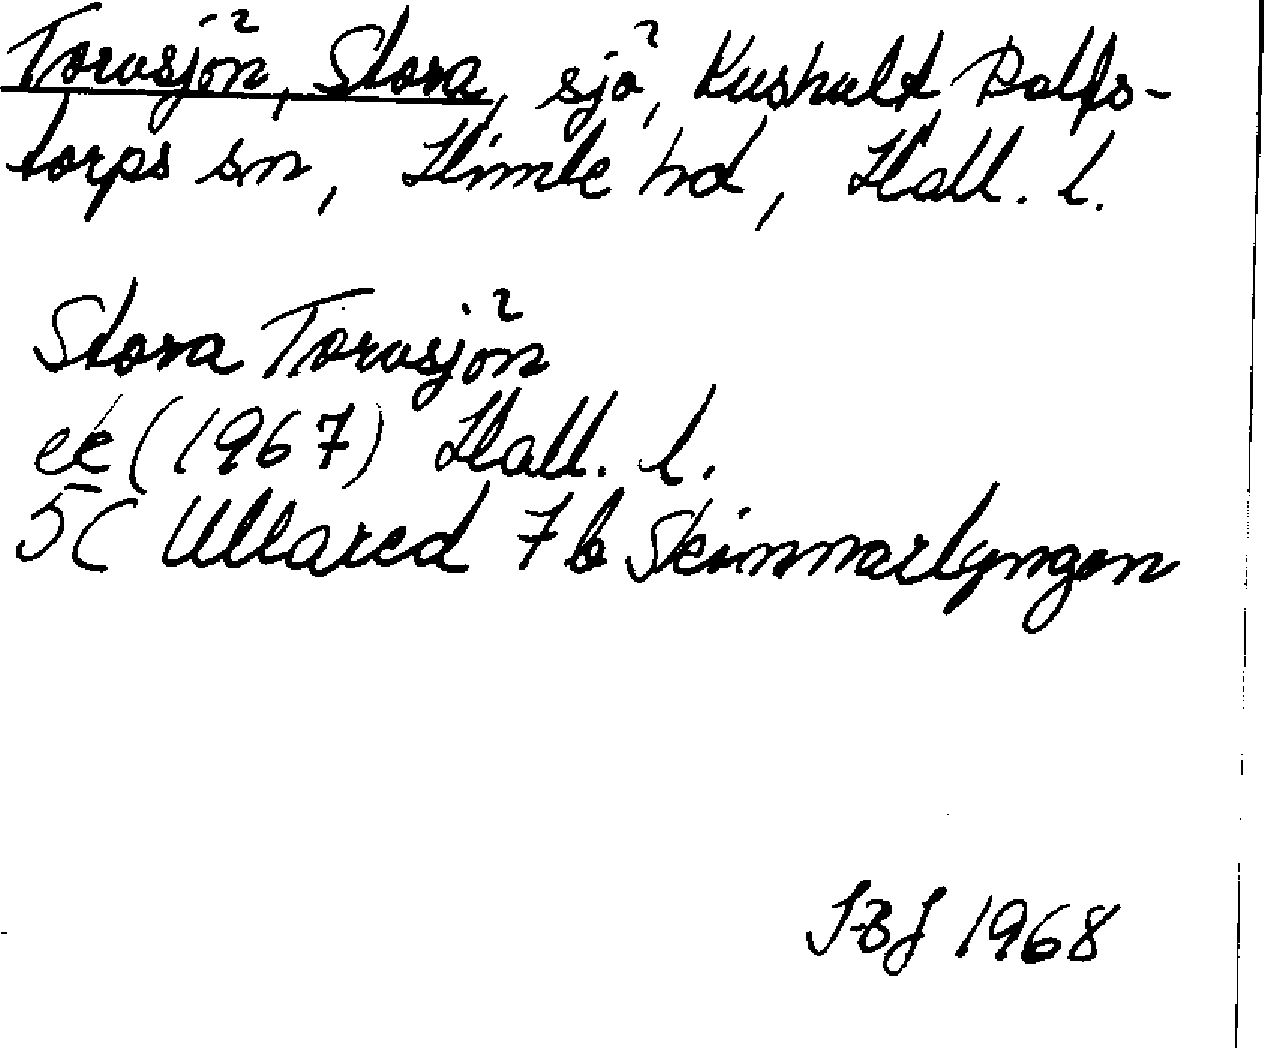 Torvsjön, Stora, sjö, Kushult Rolfs-
torps sn, Himle hd, Hall. l.
Stora Torvsjön
ek (1967) Hall. l.
5C Ullared 7b Skinnarlyngen
1968